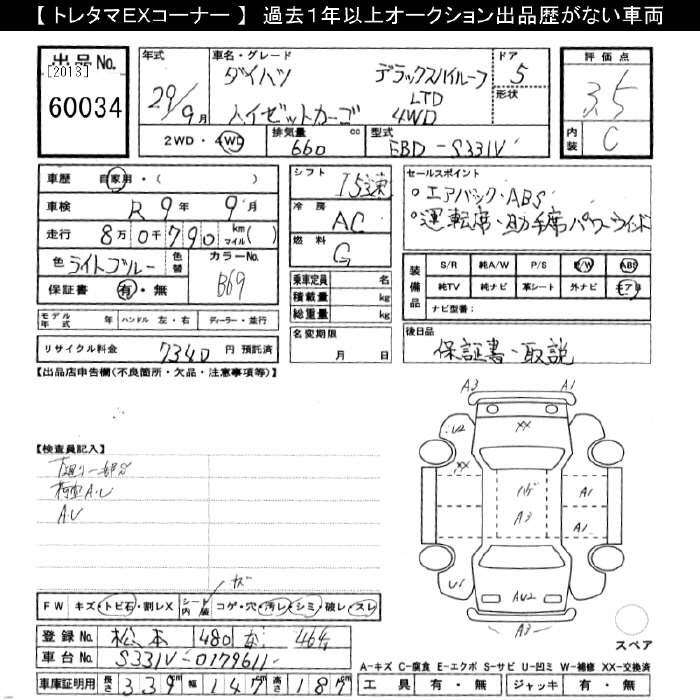 【 トレタマEXコーナー 】 過去１年以上オークション出品歴がない車両
出品No.
[2013]
60034
年式
29/9月
車名・グレード
ダイハツ
デラックスハイルーフ
ハイゼットカーゴ
LTD
4WD
ドア
5
形状
評価点
3.5
内装
C
2WD・4WD
排気量
660
cc
型式
EBD-S331V
車歴
自家用・(　)
車検
R 9年 9月
走行
8万0千790 km マイル( )
色
ライトブルー
色替
カラーNo.
B69
保証書
有・無
シフト
I53速
冷房
AC
燃料
G
セールスポイント
○エアバック・ABS
○運転席・助手席パワーウインド
乗車定員
名
積載量
kg
総重量
kg
装備品
S/R 純A/W P/S P/W ABS
純TV 純ナビ 革シート 外ナビ エアB
ナビ型番:
モデル年式 年 ハンドル 左・右 ディーラー・並行
リサイクル料金 7340 円 預託済
名変期限
月 日
後日品
保証書・取説
【出品店申告欄(不良箇所・欠品・注意事項等)】
【検査員記入】
下廻り一部サ
荷室A.U
A.U
A3
A1
U2
XX
XX
A3
A1
A1
U1
AU2
A3
スペア
キズ
FW キズ・トビ石・割レX
シート内装 コゲ・穴・汚レ・シミ・破レ・スレ
登録No. 松本 480 464
車台No. S331V-0179611
車庫証明用 長さ 3.39m 幅 1.47m 高さ 1.87m
A-キズ C-腐食 E-エクボ S-サビ U-凹ミ W-補修 XX-交換済
工具 有・無 ジャッキ 有・無